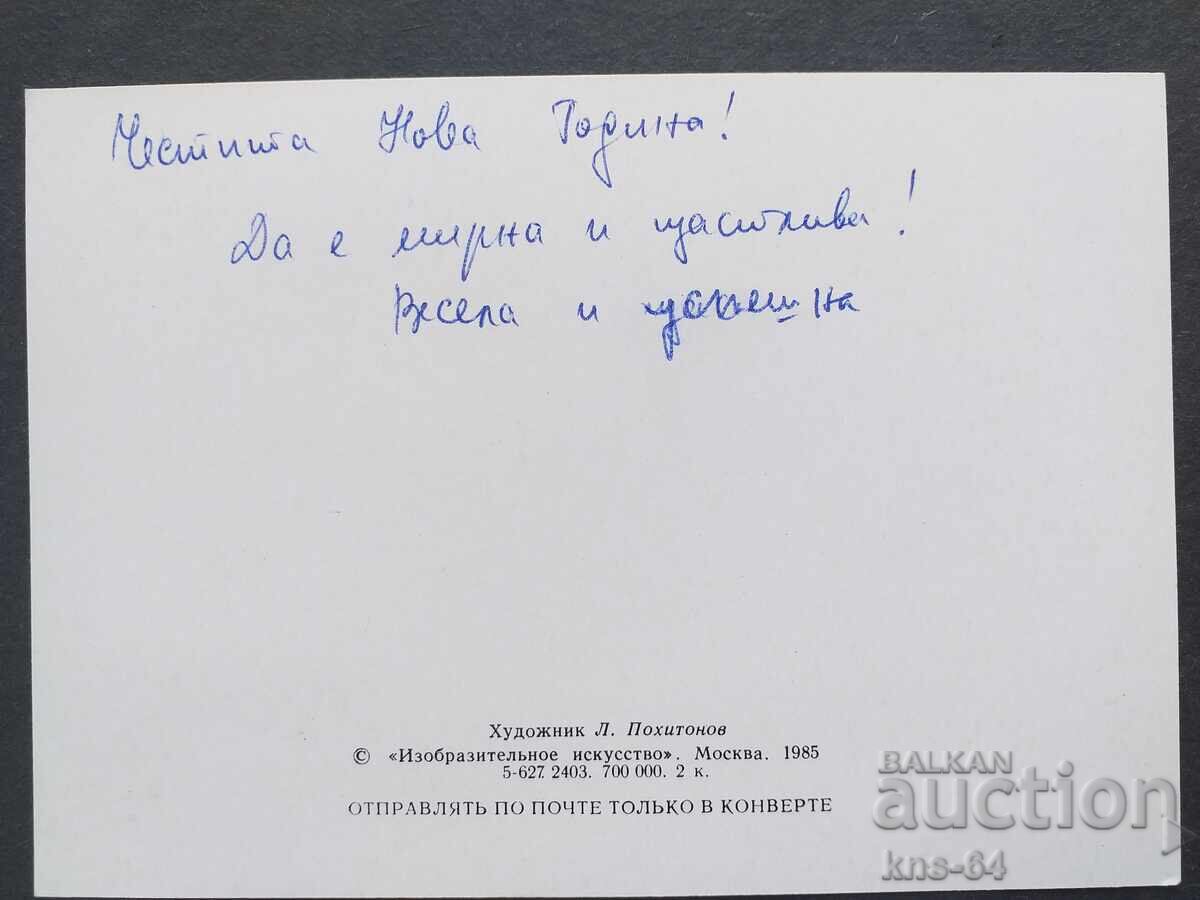 Честита Нова Година!
Да е мирна и щастлива!
Весела и успешна
Художник Л. Похитонов
© «Изобразительное искусство». Москва. 1985
5-627 2403. 700 000. 2 к.
ОТПРАВЛЯТЬ ПО ПОЧТЕ ТОЛЬКО В КОНВЕРТЕ
BALKAN
auction
kns-64